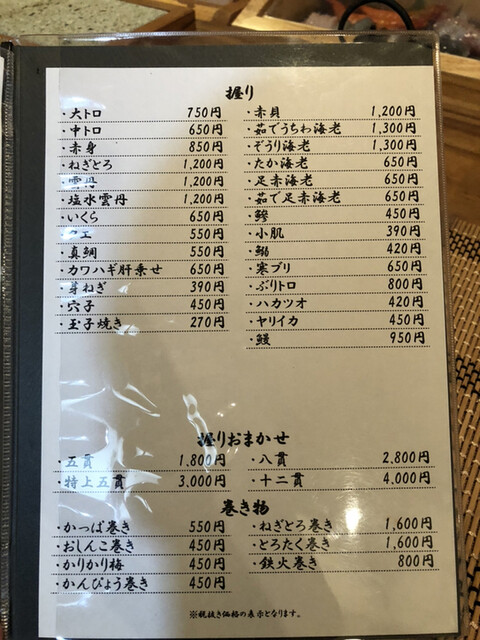 握り
・大トロ 750円
・中トロ 650円
・赤身 850円
・ねぎとろ 1,200円
・雲丹 1,200円
・塩水雲丹 1,200円
・いくら 650円
550円
・真鯛 550円
・カワハギ肝乗せ 650円
・芽ねぎ 390円
・穴子 450円
・玉子焼き 270円
・赤貝 1,200円
・茹でうちわ海老 1,300円
・ぞうり海老 1,300円
・たか海老 650円
・足赤海老 650円
・茹で足赤海老 650円
・鯵 450円
・小肌 390円
・鰯 420円
・寒ブリ 650円
・ぶりトロ 800円
・ハカツオ 420円
・ヤリイカ 450円
・鰻 950円
握りおまかせ
・五貫 1,800円
・特上五貫 3,000円
・八貫 2,800円
・十二貫 4,000円
巻き物
・かっぱ巻き 550円
・おしんこ巻き 450円
・かりかり梅 450円
・かんぴょう巻き 450円
・ねぎとろ巻き 1,600円
・とろたく巻き 1,600円
・鉄火巻き 800円
※税抜き価格の表示となります。